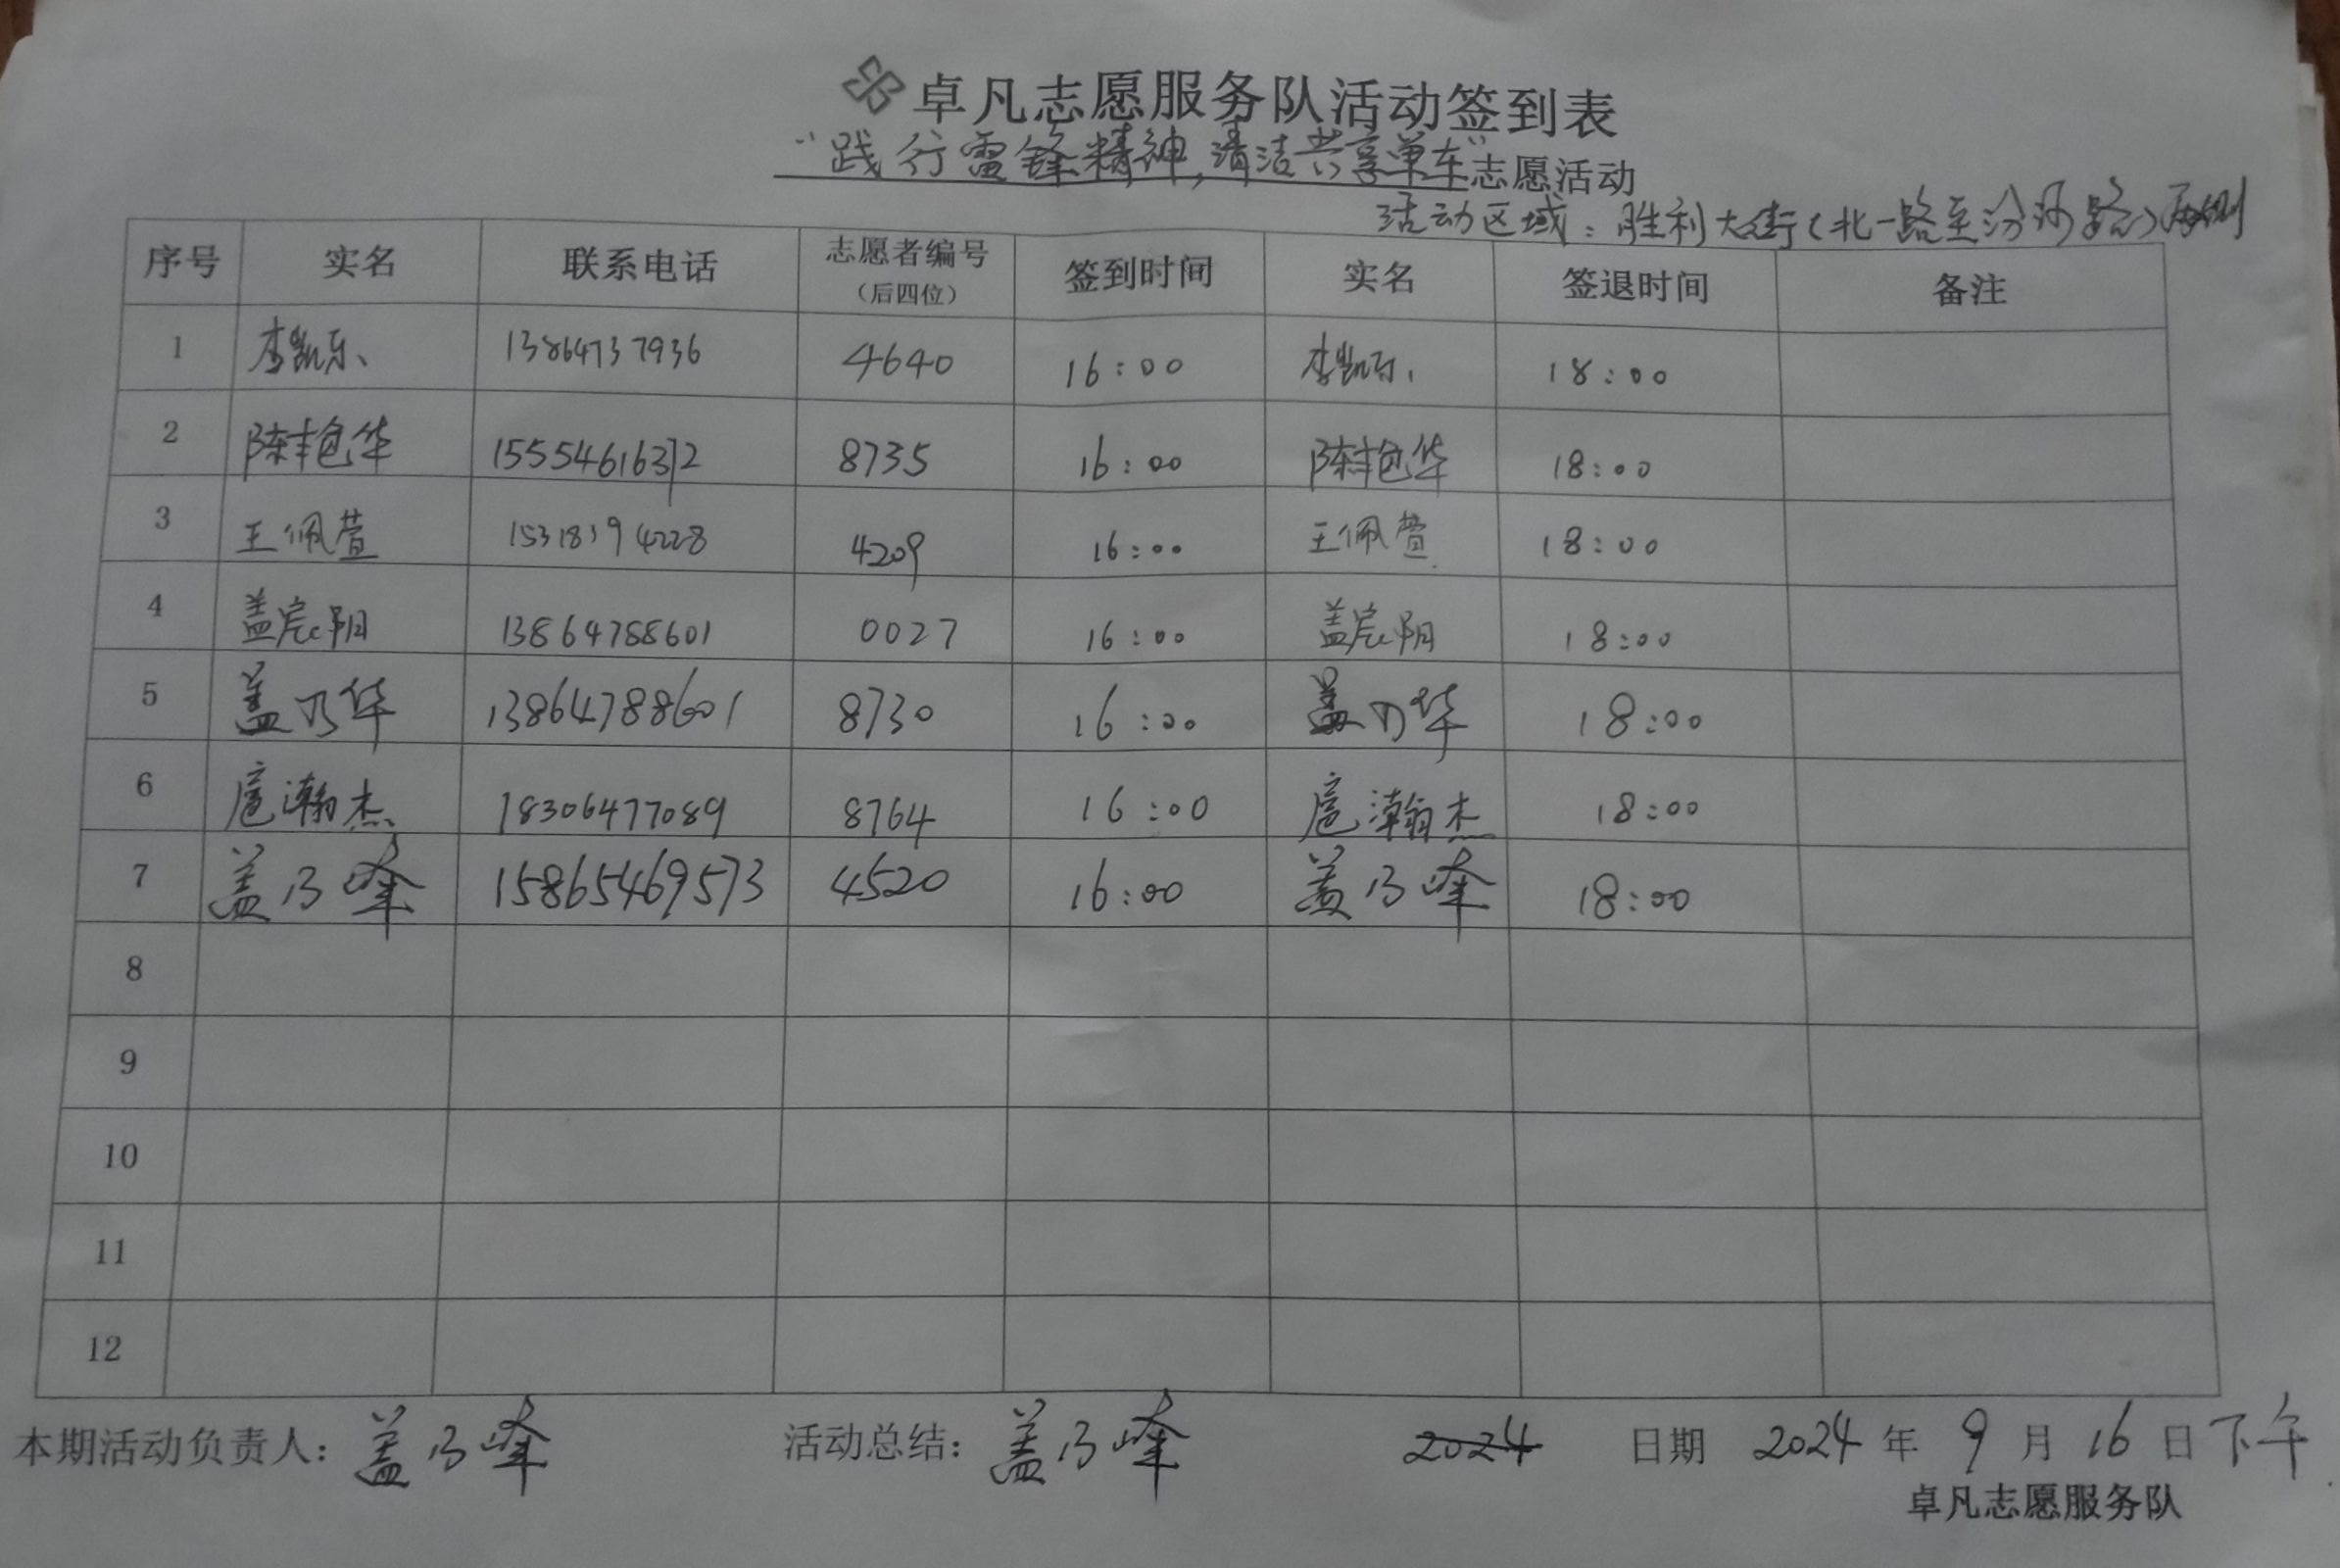 卓凡志愿服务队活动签到表
“践行雷锋精神,清洁共享单车”志愿活动
活动区域：胜利大街（北一路至汾河路）两侧
序号 实名 联系电话 志愿者编号（后四位） 签到时间 实名 签退时间 备注
1 李凯乐 13864737936 4640 16:00 李凯乐 18:00
2 陈艳华 15554616372 8735 16:00 陈艳华 18:00
3 王佩萱 15318194228 4209 16:00 王佩萱 18:00
4 盖宸阳 13864788601 0027 16:00 盖宸阳 18:00
5 盖乃华 13864788601 8730 16:00 盖乃华 18:00
6 扈瀚杰 18306477089 8764 16:00 扈瀚杰 18:00
7 盖乃峰 15865469573 4520 16:00 盖乃峰 18:00
8
9
10
11
12
本期活动负责人：盖乃峰 活动总结：盖乃峰 2024 日期 2024 年 9 月 16 日 下午
卓凡志愿服务队